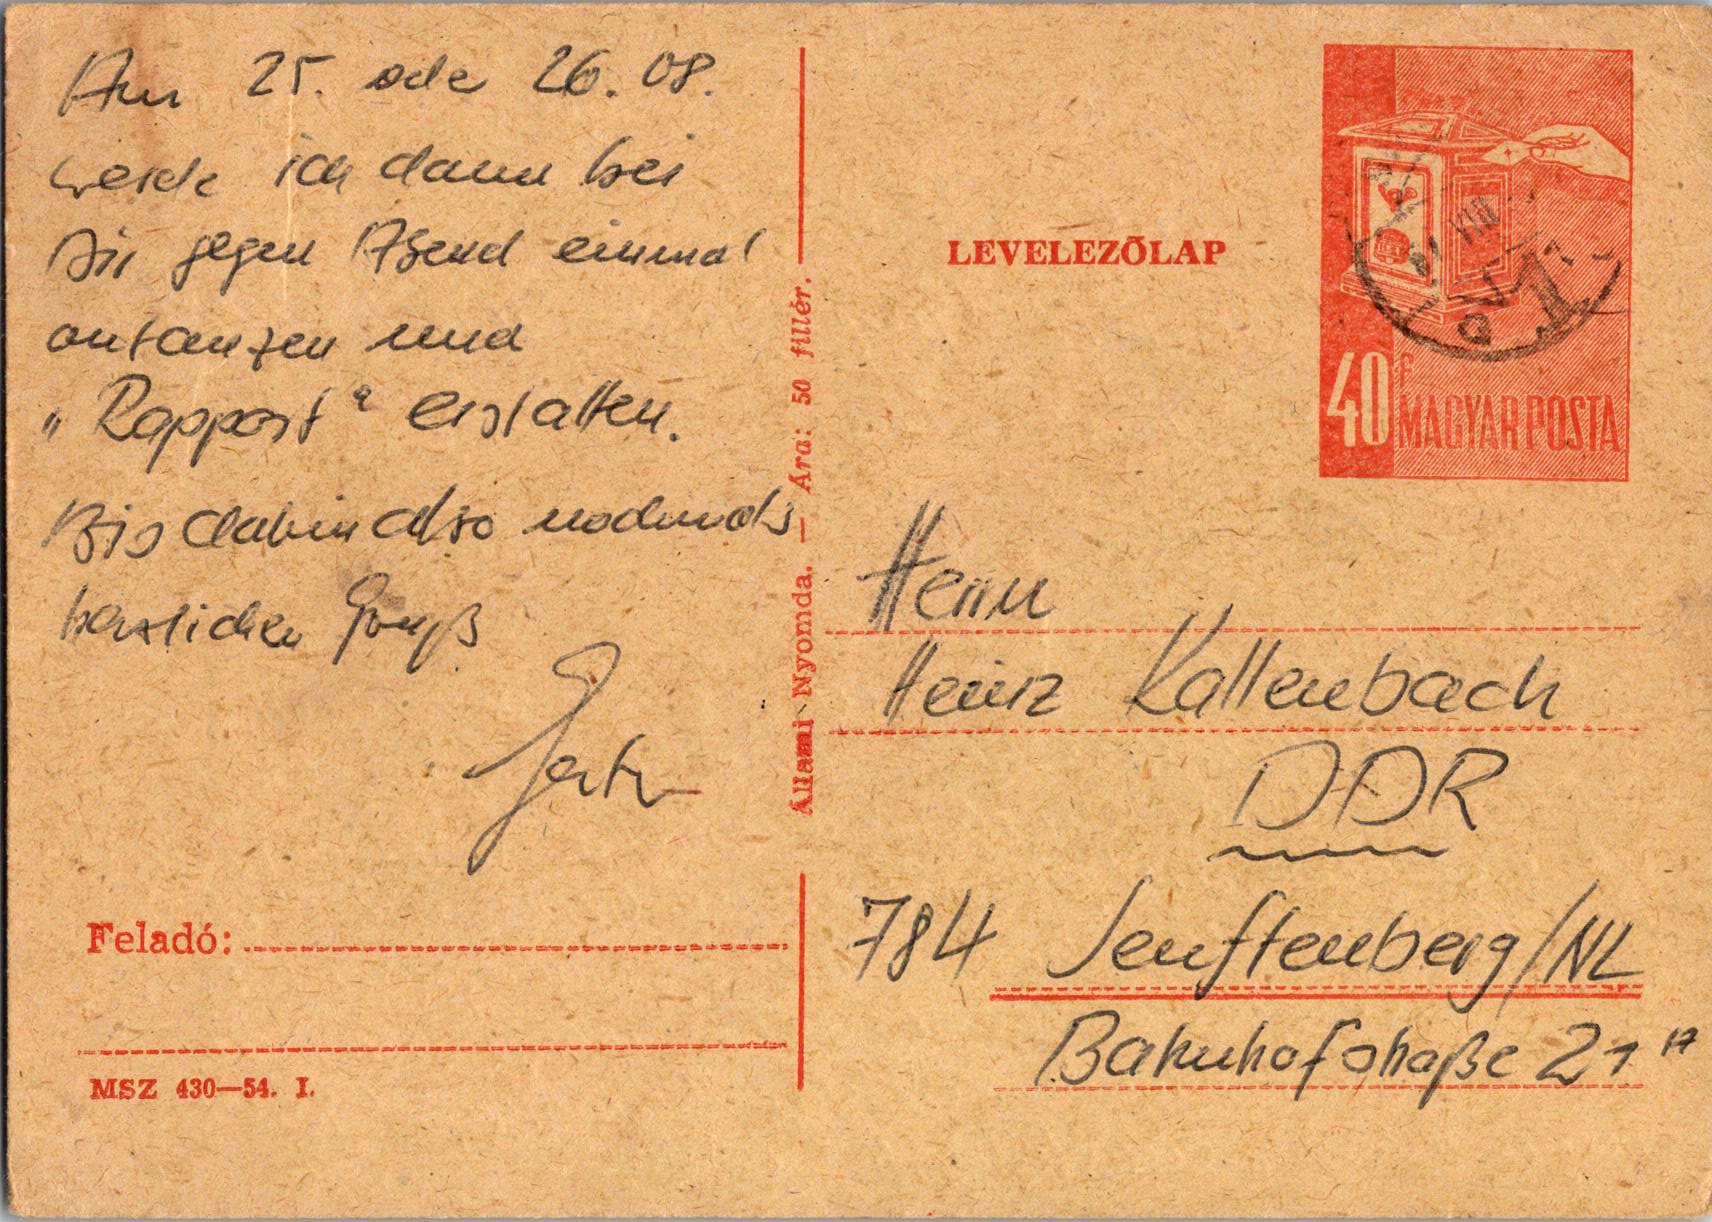 Am 25. ode 26. 08.
werde ich dann bei
Dir gegen Abend einmal
antanzen und
„Rapport“ erstatten.
Bis dahin also nochmals
herzlichen Gruß
Feladó:
MSZ 430—54. I.
Állami Nyomda. — Ára: 50 fillér.
LEVELEZŐLAP
40 f MAGYAR POSTA
VIII
1
Herrn
Heinz Kallenbach
DDR
784 Senftenberg/NL
Bahnhofstraße 21